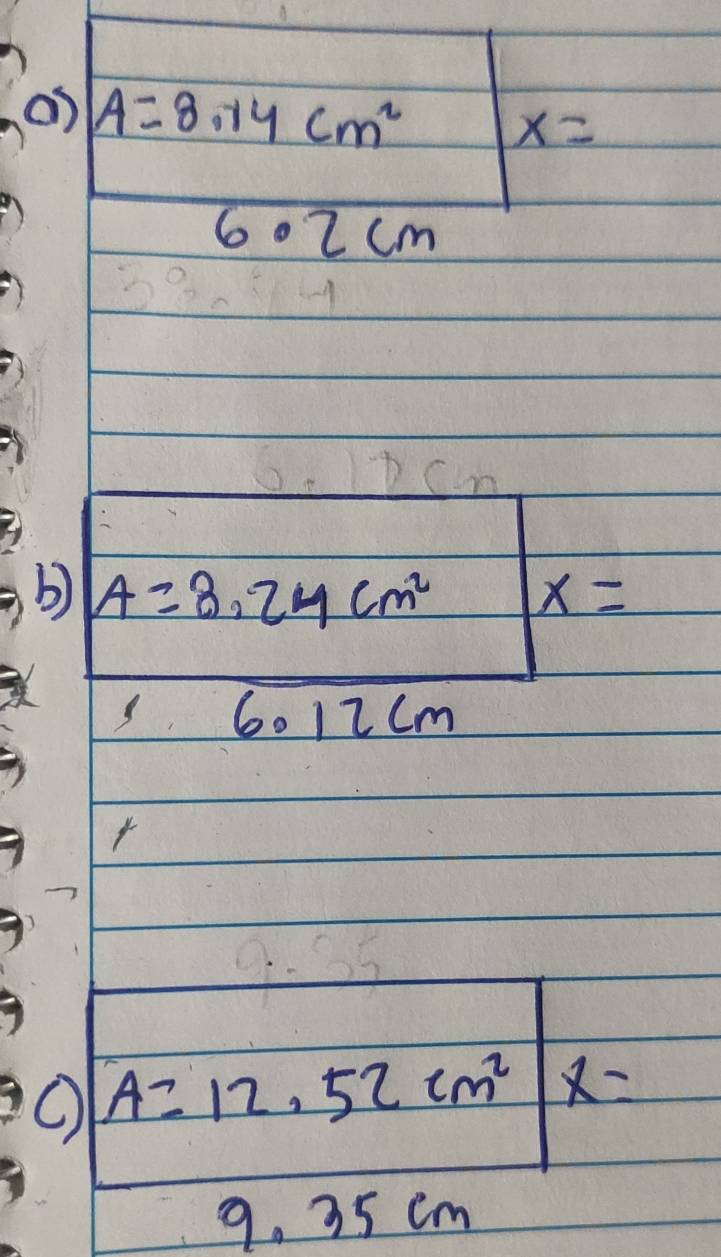 a) A = 8.14 cm² x =
6.2 cm
6.12 cm
b) A = 8.24 cm² x =
6.12 cm
9.35
c) A = 12.52 cm² x =
9.35 cm